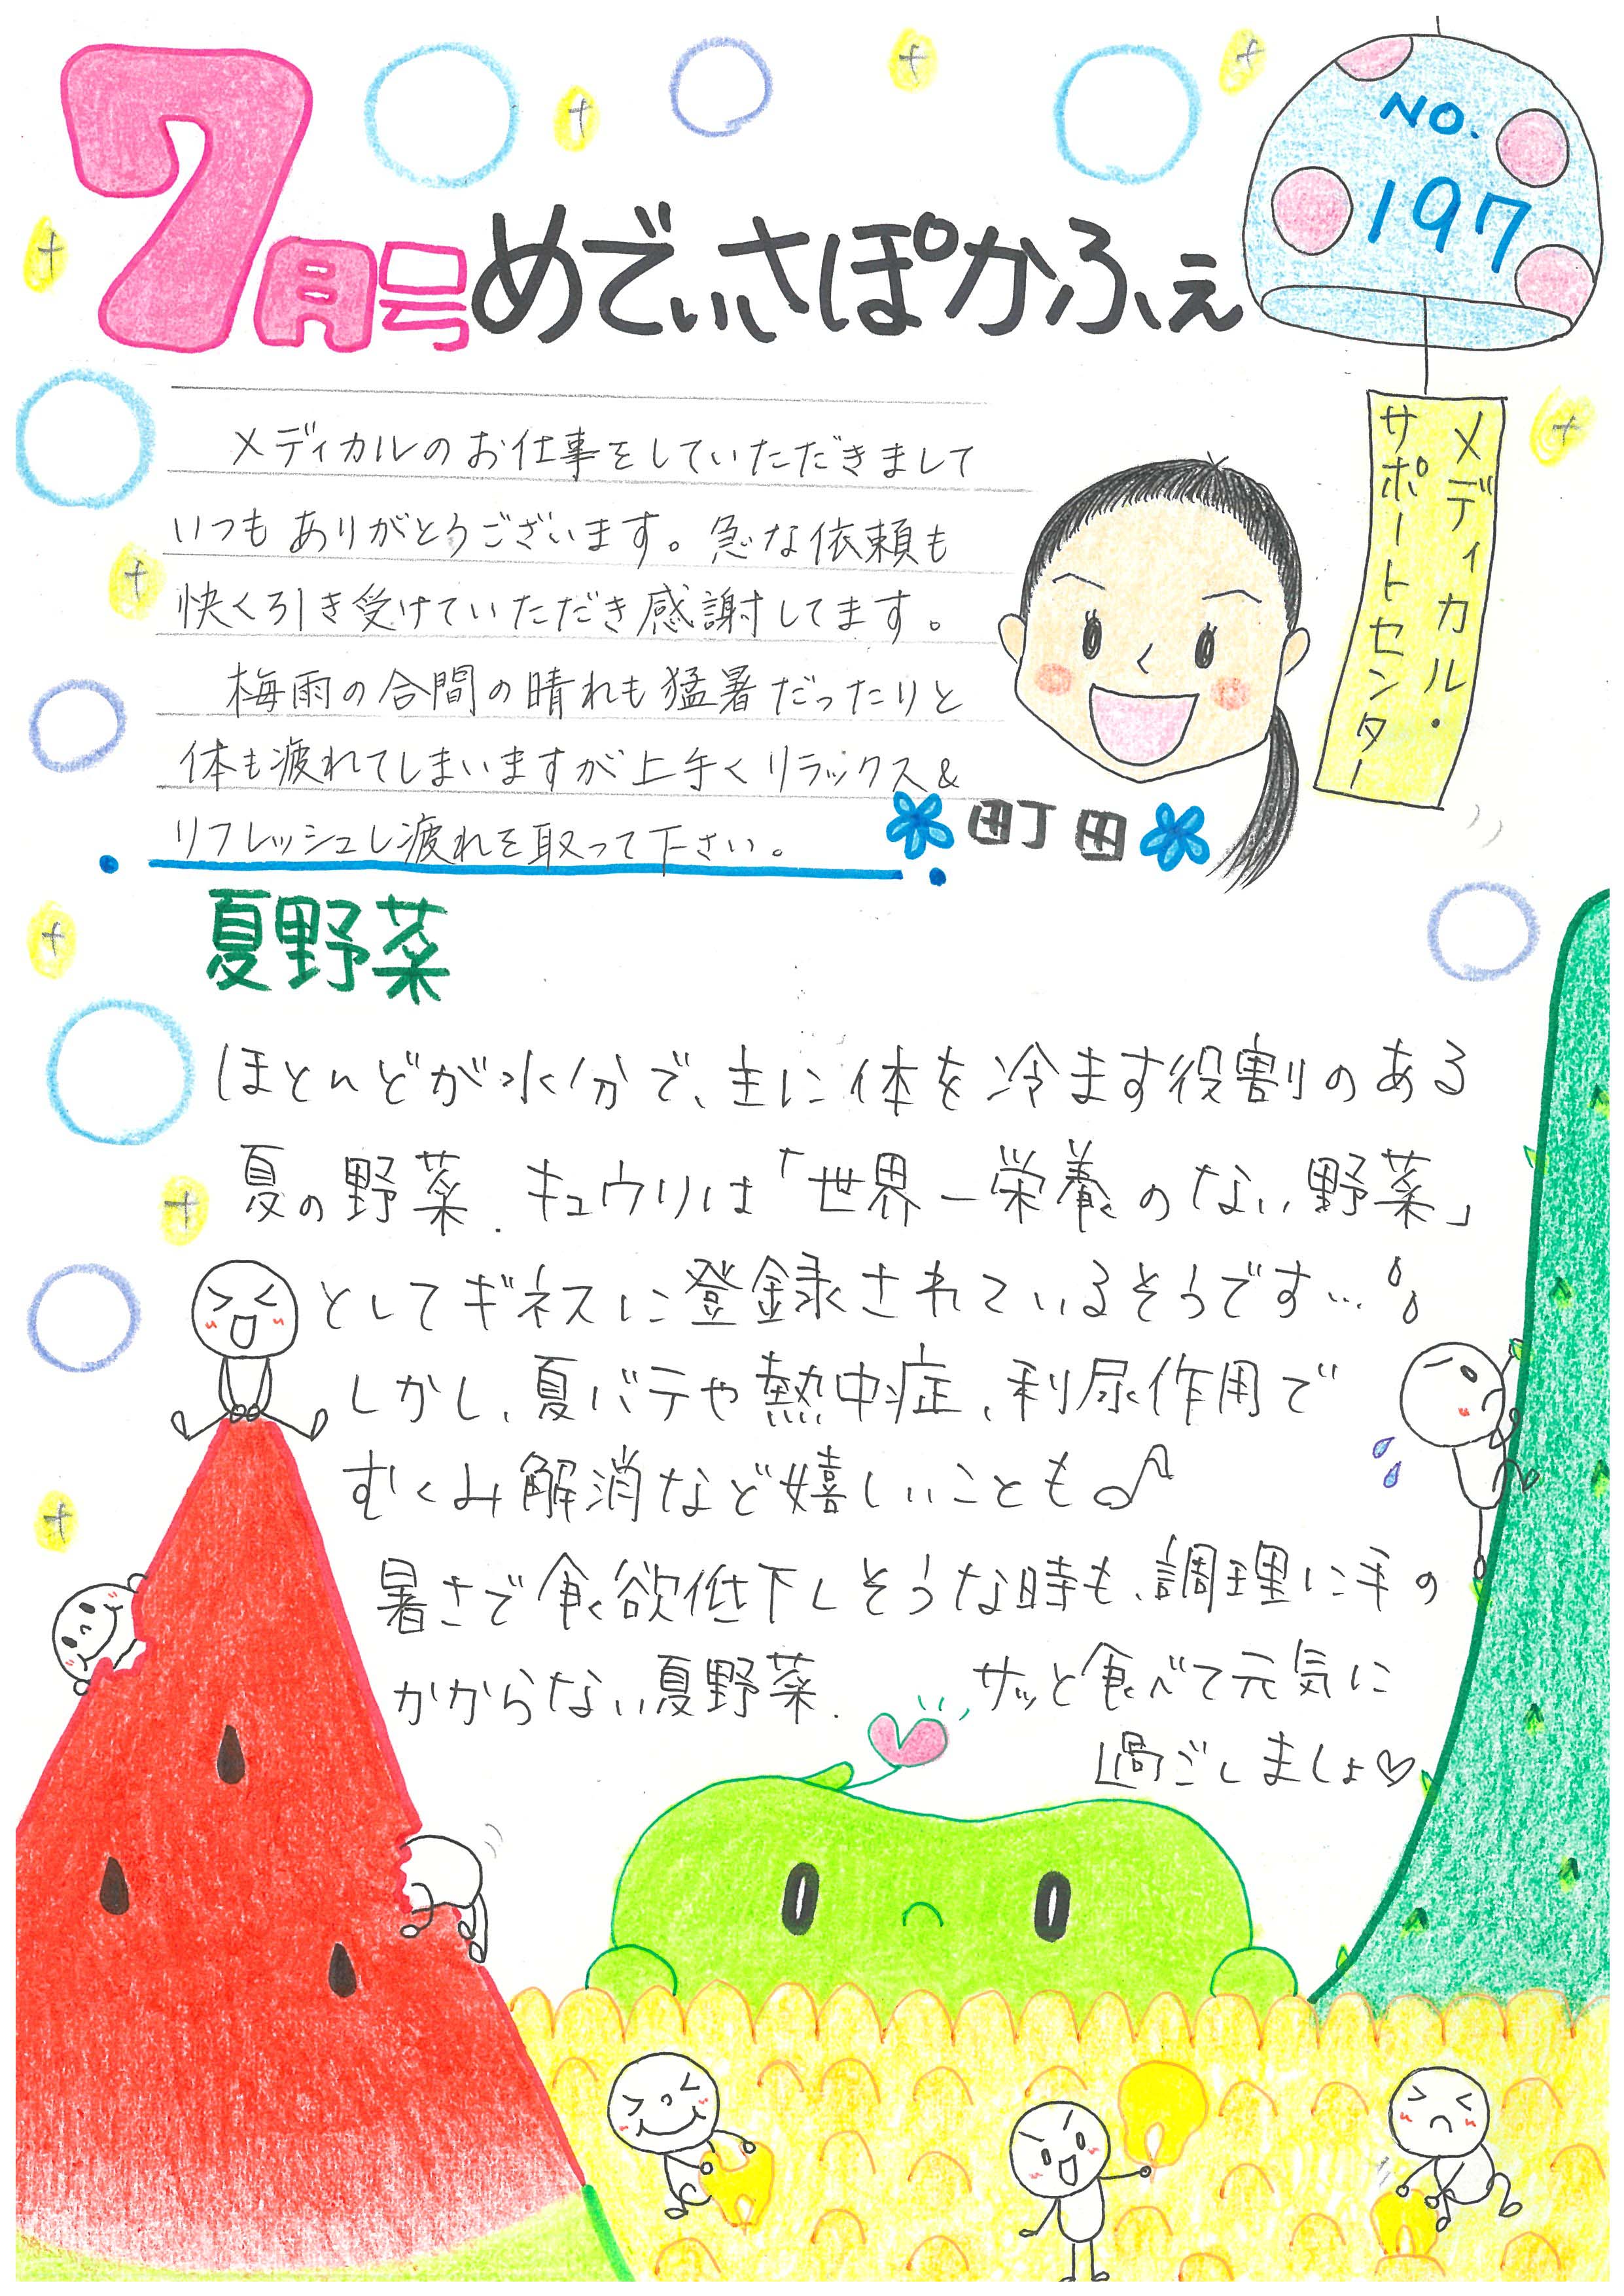 7月号 めでぃさぽかふぇ
NO.
197
メディカル・
サポートセンター
メディカルのお仕事をしていただきまして
いつもありがとうございます。急な依頼も
快く引き受けていただき感謝してます。
梅雨の合間の晴れも猛暑だったりと
体も疲れてしまいますが上手くリラックス&
リフレッシュし疲れを取って下さい。
町田
夏野菜
ほとんどが水分で、主に体を冷ます役割のある
夏の野菜. キュウリは「世界一栄養のない野菜」
としてギネスに登録されているそうです…
しかし、夏バテや熱中症、利尿作用で
むくみ解消など嬉しいことも♪
暑さで食欲低下しそうな時も、調理に手の
かからない夏野菜. サッと食べて元気に
過ごしましょ♡